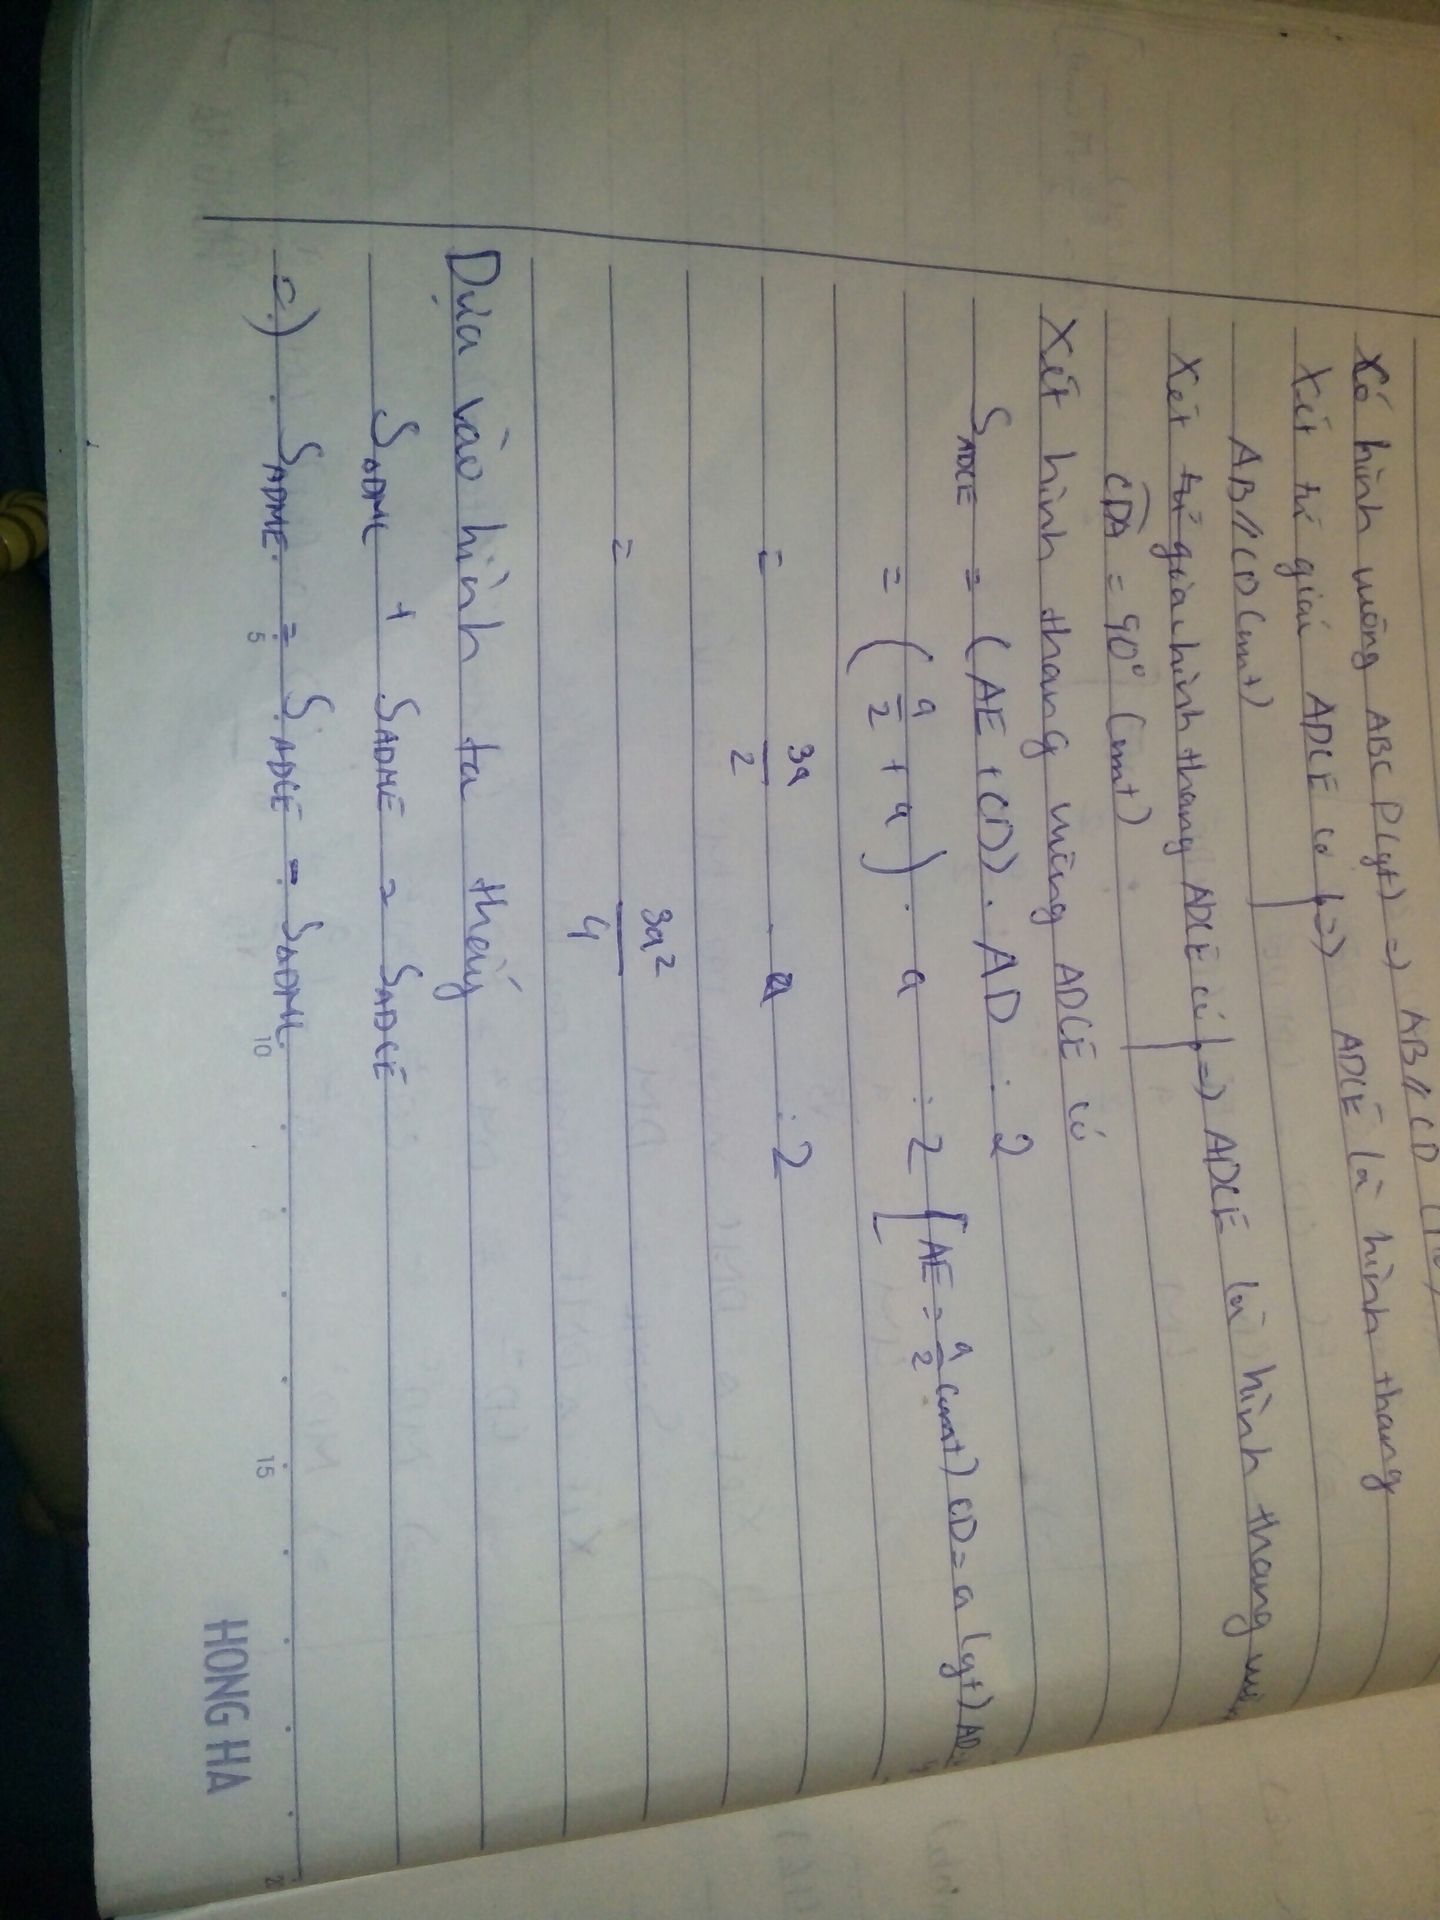 Xé hình vuông ABCD (gt) => AB // CD
Xét tứ giác ADCE có | => ADCE là hình thang
AB // CD (cmt)
Xét tứ giác hình thang ADCE có | => ADCE là hình thang
CDA = 90° (cmt)
Xét hình thang vuông ADCE có
S ADCE = (AE + CD) . AD : 2
= (a/2 + a) . a : 2 [AE = a/2 (cmt) CD = a (gt) AD
= 3a/2 . a : 2
= 3a²/4
Dựa vào hình ta thấy
S ADML + S ADME = S ADCE
=) S ADME = S ADCE - S ADML
5 10 15
HONG HA